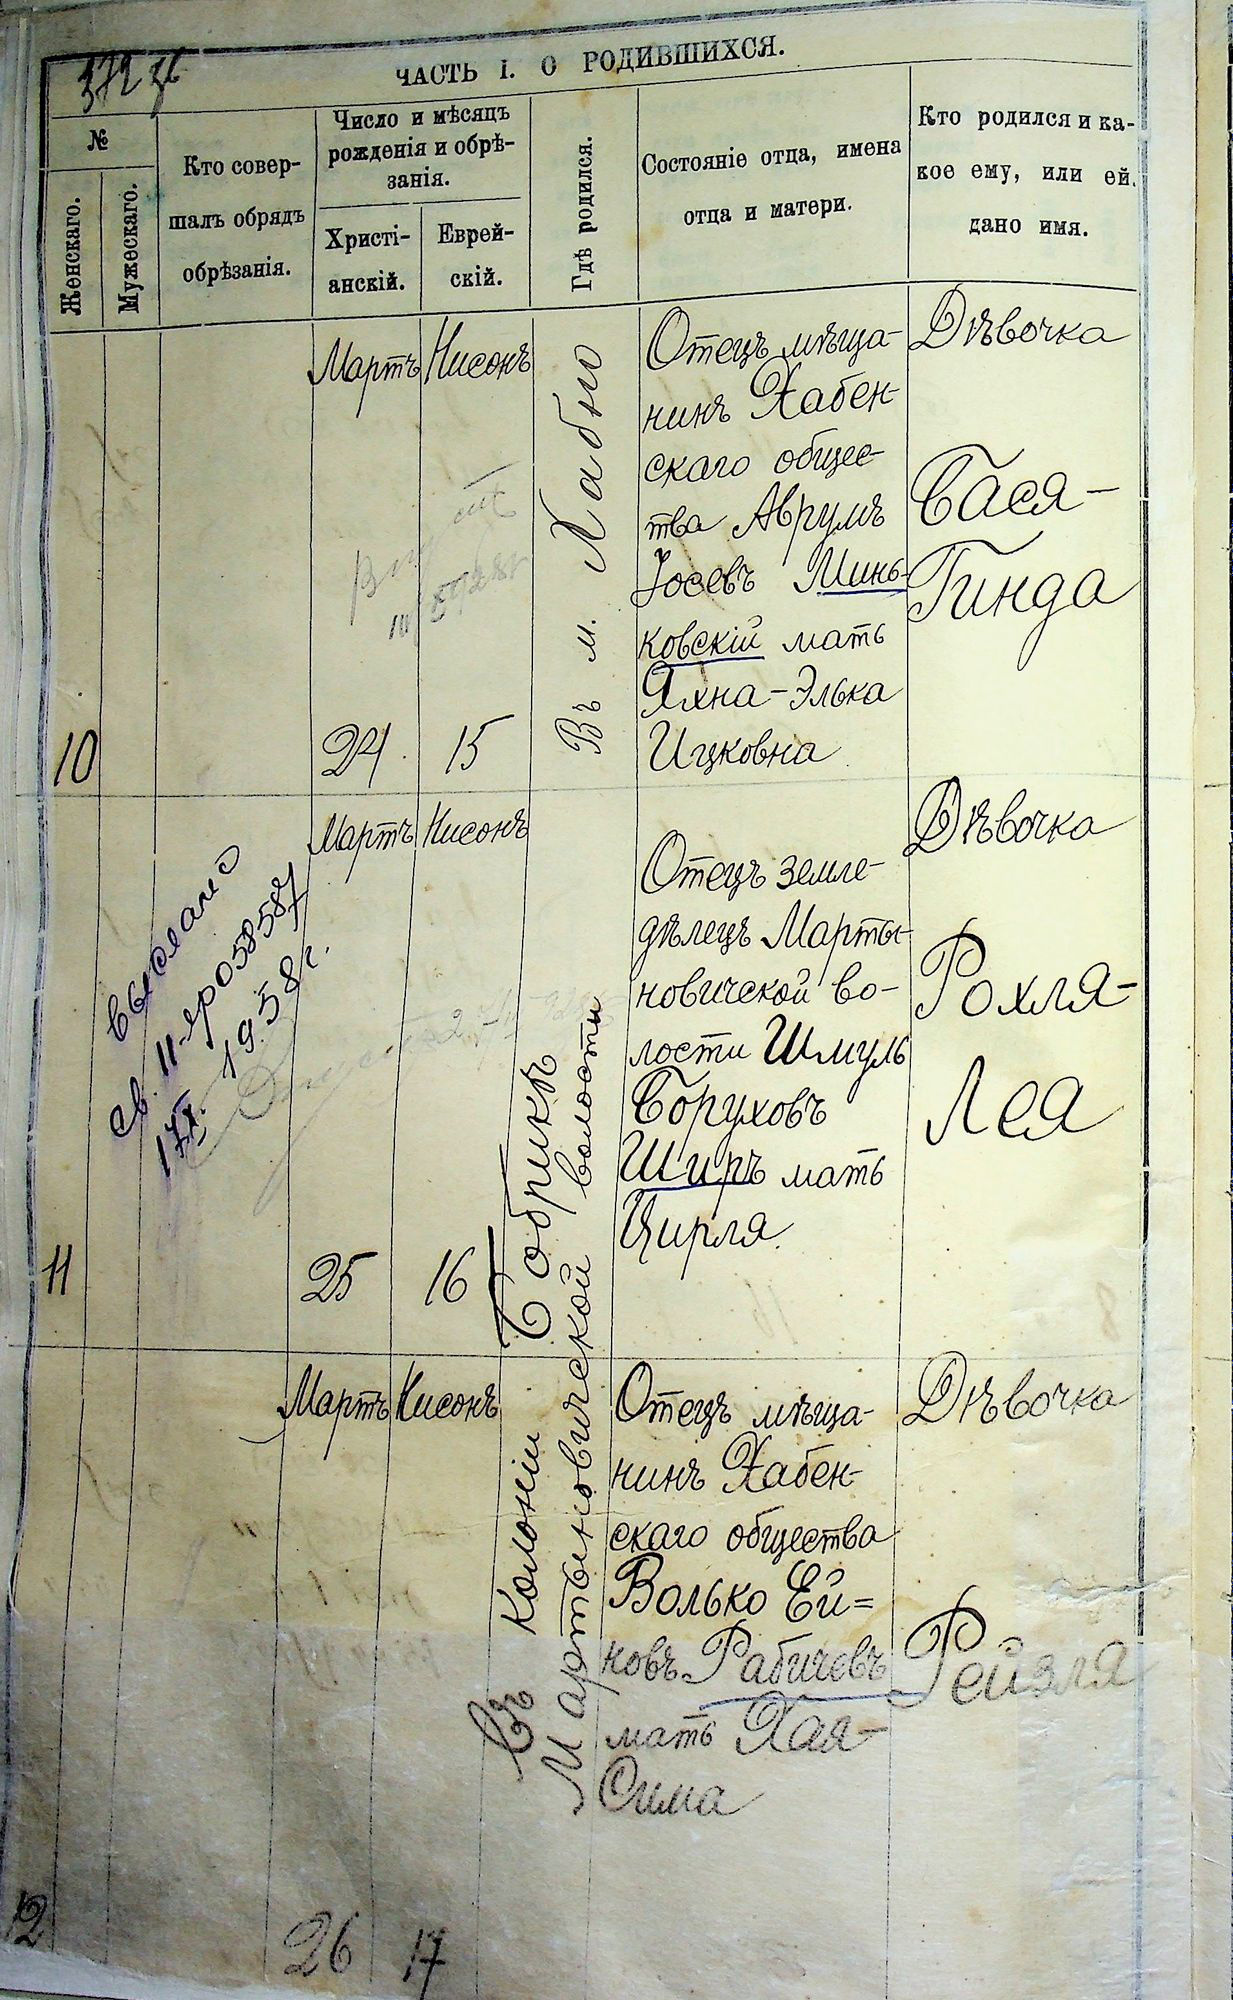 ЧАСТЬ I. О РОДИВШИХСЯ.
№
Женскаго.
Мужескаго.
Кто совер-
шалъ обрядъ
обрѣзанія.
Число и мѣсяцъ
рожденія и обрѣ-
занія.
Христі-
анскій.
Еврей-
скій.
Гдѣ родился.
Состояніе отца, имена
отца и матери.
Кто родился и ка-
кое ему, или ей,
дано имя.
10
Мартъ
24
Нисонъ
15
Въ м. Хабно
Отецъ мѣща-
нинъ Хабен-
скаго общес-
тва Аврумъ
Іосевъ Минь-
ковскій мать
Яхна-Элька
Ицковна
Дѣвочка
Бася-
Гинда
11
выслано
св. II-
1958г.
Мартъ
25
Нисонъ
16
Въ колоніи Бобрикъ
Мартыновической волости
Отецъ земле-
дѣлецъ Марты-
новической во-
лости Шмуль
Боруховъ
Ширъ мать
Цирля
Дѣвочка
Рохля-
Лея
12
Мартъ
26
Нисонъ
17
Отецъ мѣща-
нинъ Хабен-
скаго общества
Волько Ей=
ковъ Рабичевъ
мать Хая-
Сима
Дѣвочка
Рейзля